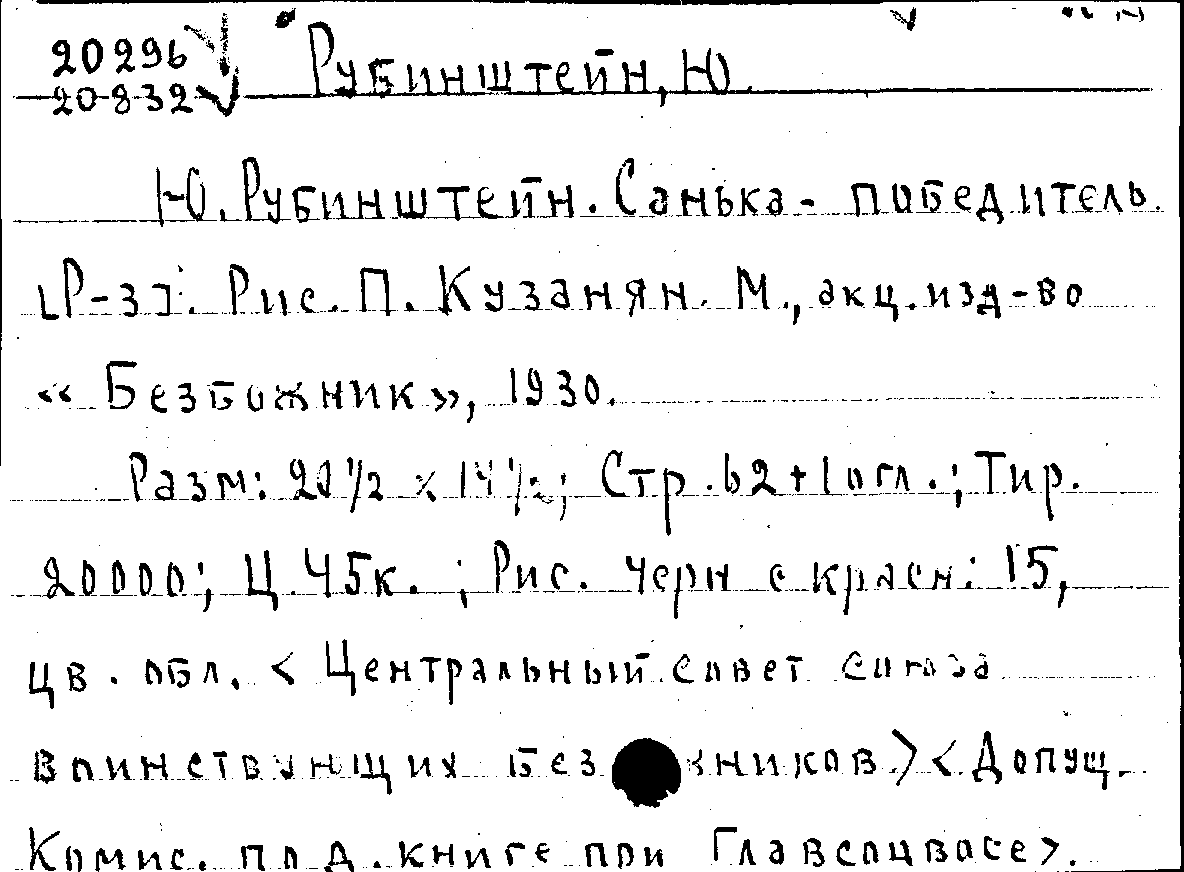 20296 Рубинштейн, Ю.
20832
Ю. Рубинштейн. Санька - победитель.
[Р-з]. Рис. П. Кузанян. М., акц. изд-во
«Безбожник», 1930.
Разм: 20 1/2 x 14 1/2; Стр. 62 + 1 огл.; Тир.
20000; Ц. 45к.; Рис. черн с красн: 15,
цв. обл. <Центральный совет союза
воинствующих без жников> <Допущ.
Комис. по д. книге при Главсоцвосе>.